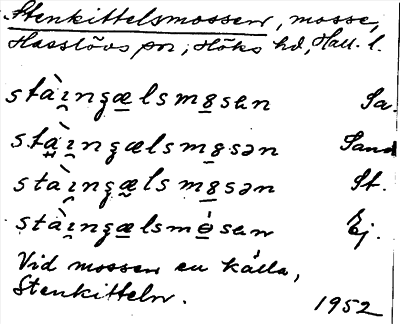 Stenkittelsmossen, mosse,
Hasslövs sn; Höks hd, Hall. l.
stàı̯ngæ̱lsmo̱sən Sa.
stà̤ı̯ngælsmo̱sən Sand
stàı̯ngæ̱lsmo̱sən St.
stàı̯ngæ̱lsmó̱sən Ej.
Vid mossen en källa,
Stenkitteln.
1952